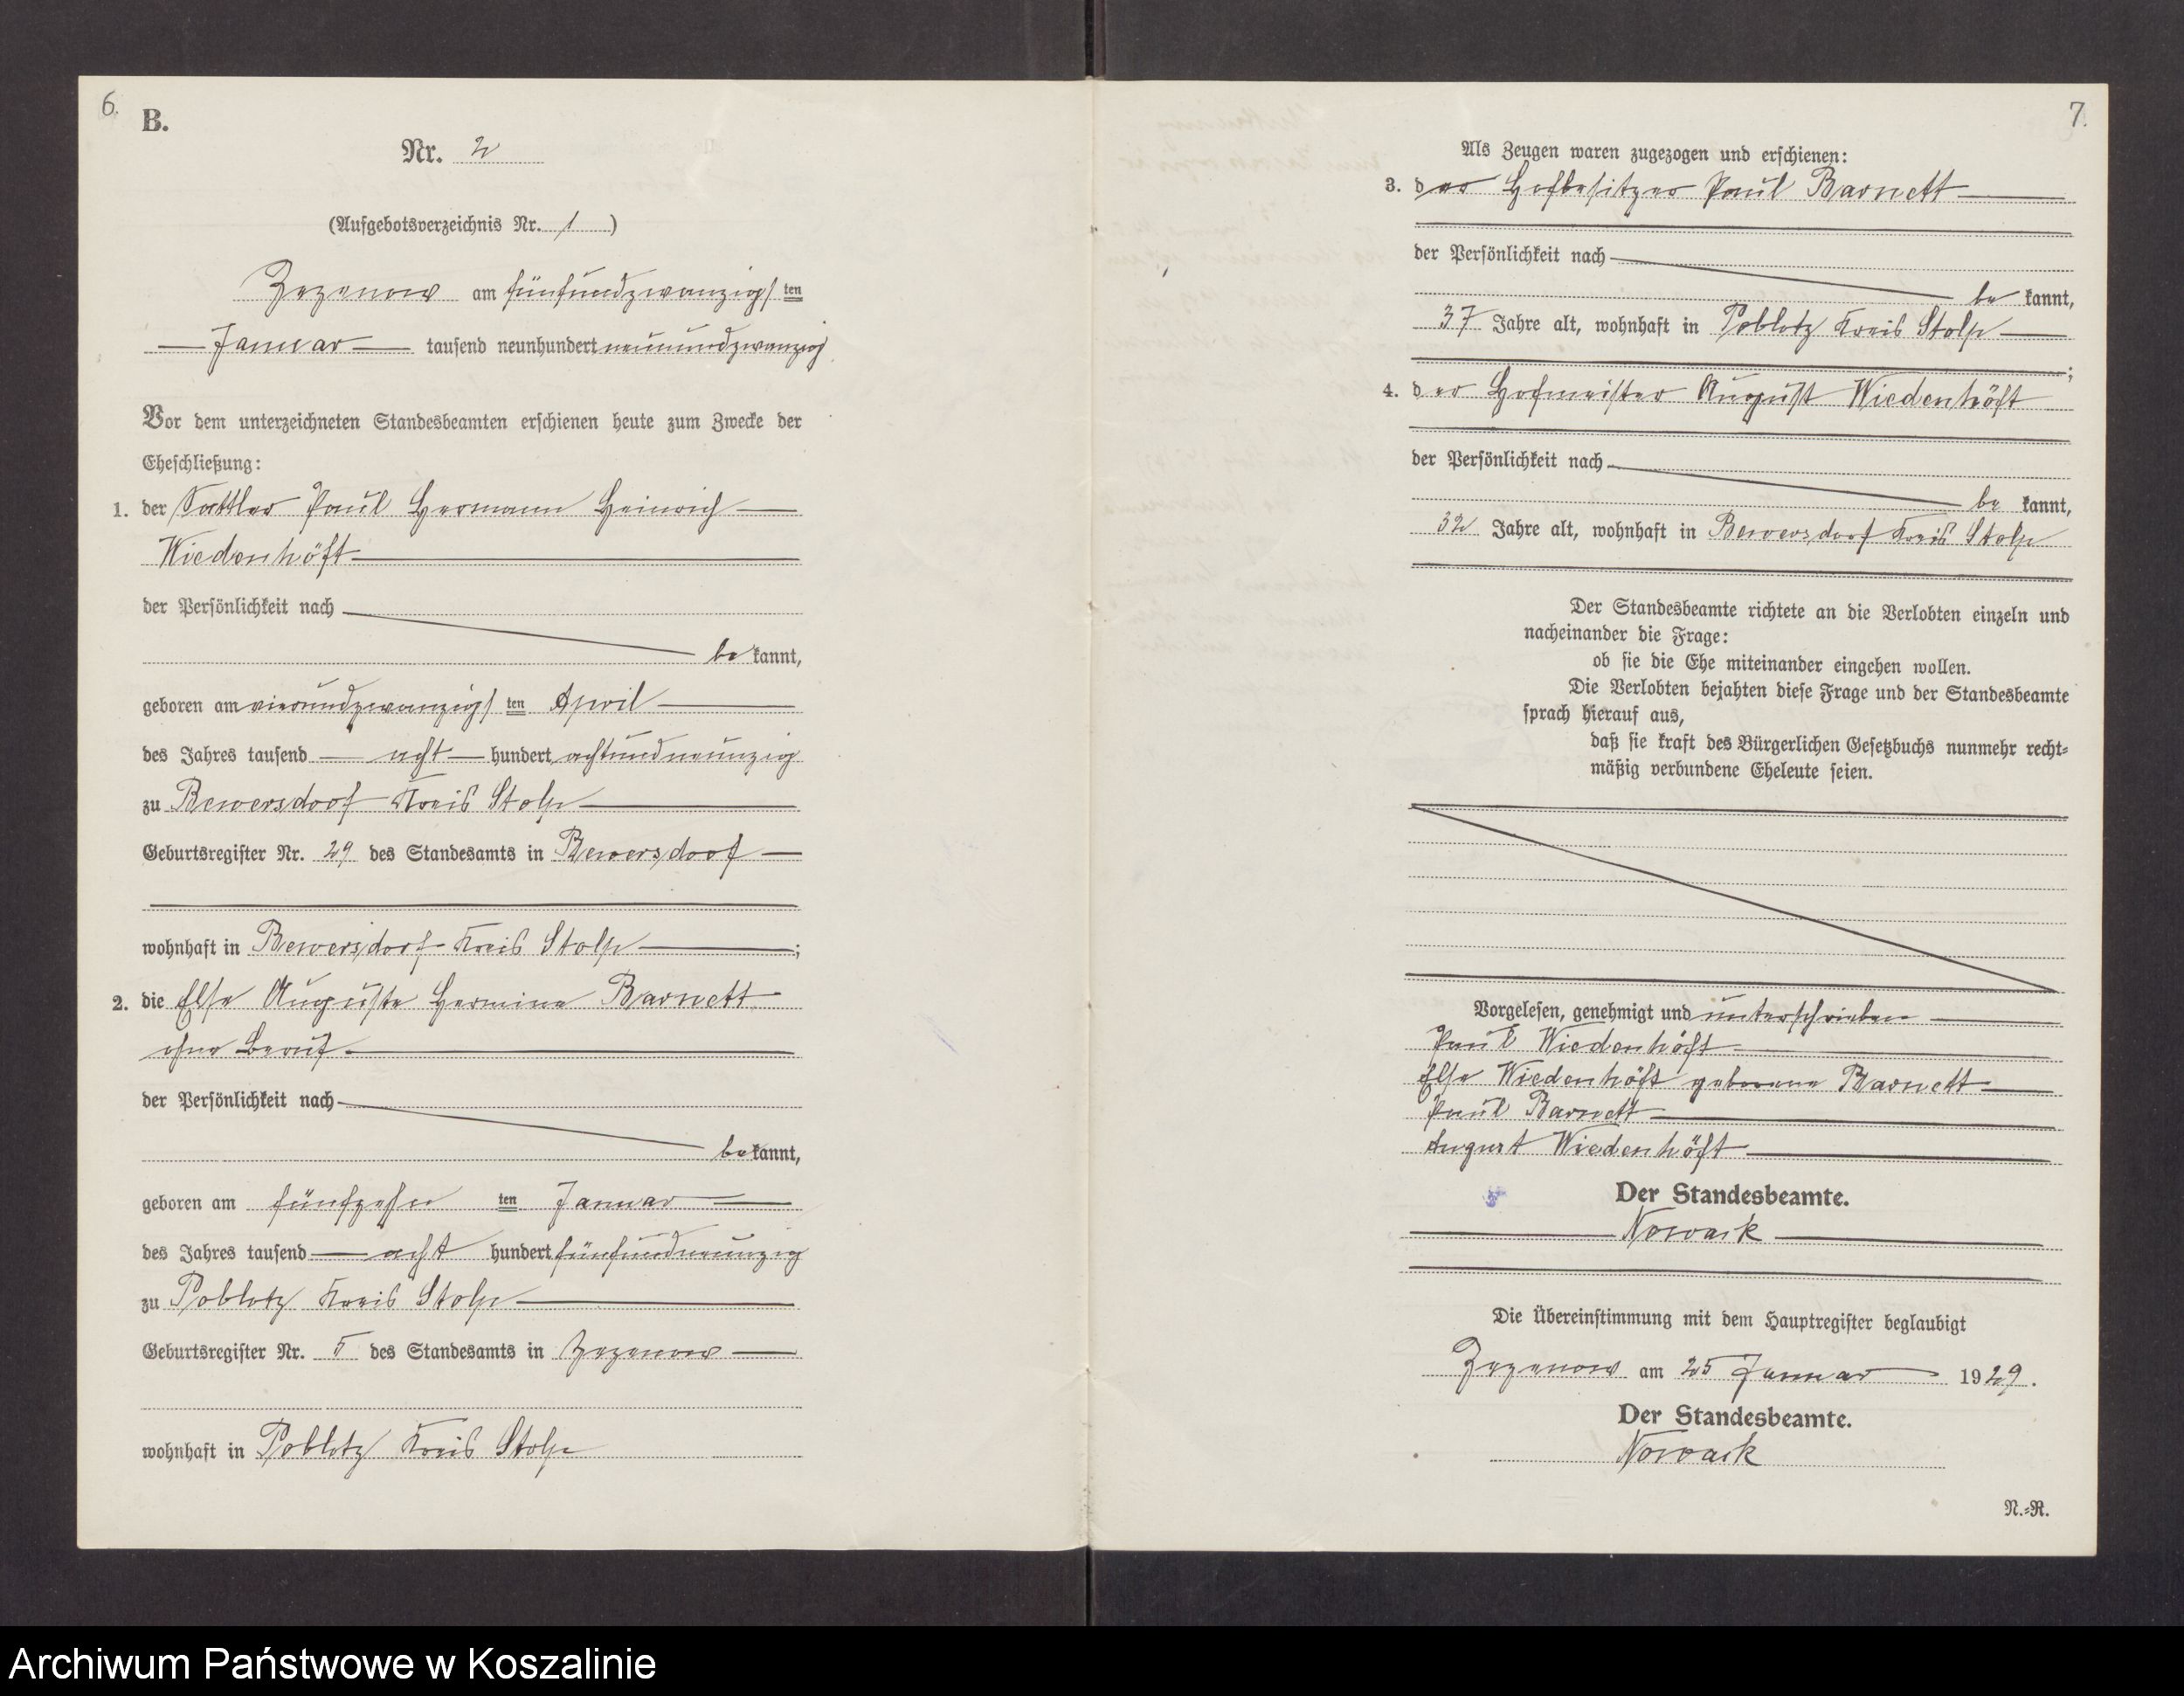 6.
B.
Nr. 2
(Aufgebotsverzeichnis Nr. 1)
Zezenow am fünfundzwanzigsten
Januar tausend neunhundert neunundzwanzig
Vor dem unterzeichneten Standesbeamten erschienen heute zum Zwecke der
Eheschließung:
1. der Sattler Paul Hermann Heinrich
Wiedenhöft
der Persönlichkeit nach
be kannt,
geboren am vierundzwanzigsten April
des Jahres tausend acht hundert achtundneunzig
zu Bewersdorf Kreis Stolp
Geburtsregister Nr. 29 des Standesamts in Bewersdorf
wohnhaft in Bewersdorf Kreis Stolp ;
2. die Else Auguste Hermine Barnett
ohne Beruf
der Persönlichkeit nach
be kannt,
geboren am fünfzehn ten Januar
des Jahres tausend acht hundert fünfundneunzig
zu Poblotz Kreis Stolp
Geburtsregister Nr. 5 des Standesamts in Zezenow
wohnhaft in Poblotz Kreis Stolp
7.
Als Zeugen waren zugezogen und erschienen:
3. der Hofbesitzer Paul Barnett
der Persönlichkeit nach
be kannt,
37 Jahre alt, wohnhaft in Poblotz Kreis Stolp ;
4. der Hofmeister August Wiedenhöft
der Persönlichkeit nach
be kannt,
32 Jahre alt, wohnhaft in Bewersdorf Kreis Stolp
Der Standesbeamte richtete an die Verlobten einzeln und
nacheinander die Frage:
ob sie die Ehe miteinander eingehen wollen.
Die Verlobten bejahten diese Frage und der Standesbeamte
sprach hierauf aus,
daß sie kraft des Bürgerlichen Gesetzbuchs nunmehr recht-
mäßig verbundene Eheleute seien.
Vorgelesen, genehmigt und unterschrieben
Paul Wiedenhöft
Else Wiedenhöft geborene Barnett
Paul Barnett
August Wiedenhöft
Der Standesbeamte.
Nowack
Die Übereinstimmung mit dem Hauptregister beglaubigt
Zezenow am 25 Januar 1929.
Der Standesbeamte.
Nowack
N.-R.
Archiwum Państwowe w Koszalinie